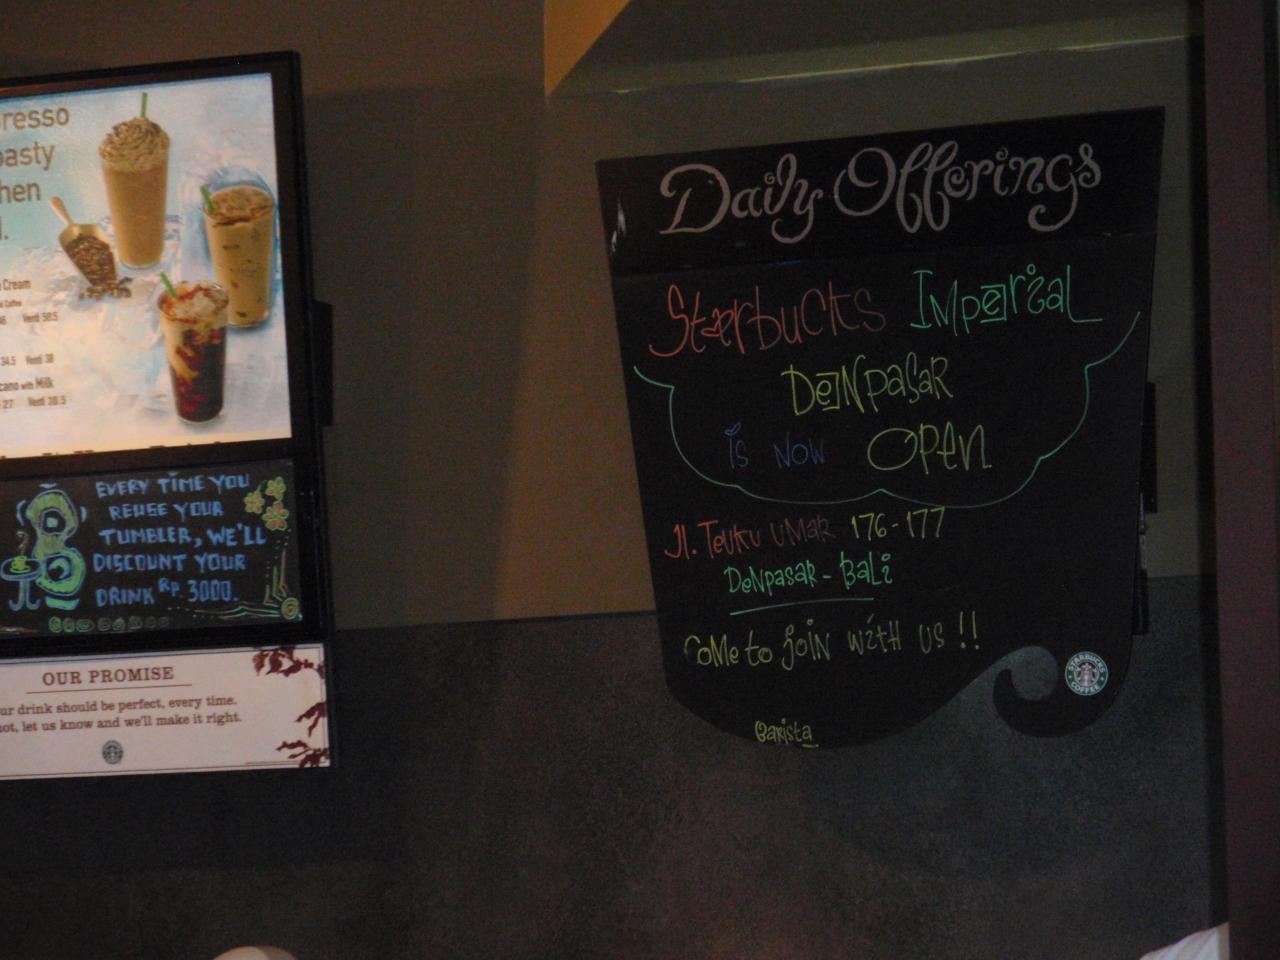 resso
asty
hen
d.
Cream
Coffee
46 Venti 50.5
34.5 Venti 38
cano with Milk
27 Venti 30.5
EVERY TIME YOU
REUSE YOUR
TUMBLER, WE'LL
DISCOUNT YOUR
DRINK RP. 3000.
OUR PROMISE
ur drink should be perfect, every time.
not, let us know and we'll make it right.
Daily Offerings
Starbucks Imperial
Denpasar
is now Open
Jl. Teuku Umar 176-177
Denpasar - Bali
Come to join with us !!
Barista
STARBUCKS
COFFEE